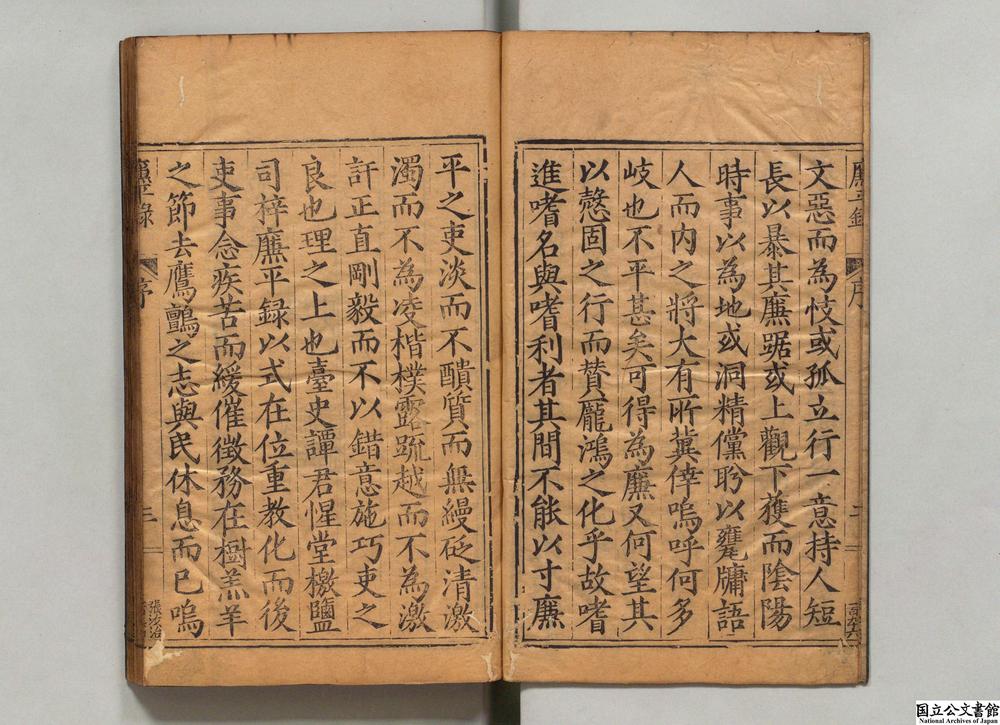 廉平錄
序
二
文惡而為忮或孤立行一意持人短
長以暴其廉踞或上觀下獲而陰陽
時事以為地或洞精儻聆以甕牖語
人而內之將大有所冀倖嗚呼何多
岐也不平甚矣可得為廉又何望其
以愨固之行而贊龐鴻之化乎故嗜
進嗜名與嗜利者其間不能以寸廉
平之吏淡而不醩質而無縵砭清激
濁而不為凌楷樸露疏越而不為激
訐正直剛毅而不以錯意施巧吏之
良也理之上也臺史譚君惺堂檄鹽
司梓廉平録以式在位重教化而後
吏事念疾苦而緩催徵務在樹羔羊
之節去鷹鸇之志與民休息而已嗚
廉平錄
序
三
国立公文書館
National Archives of Japan